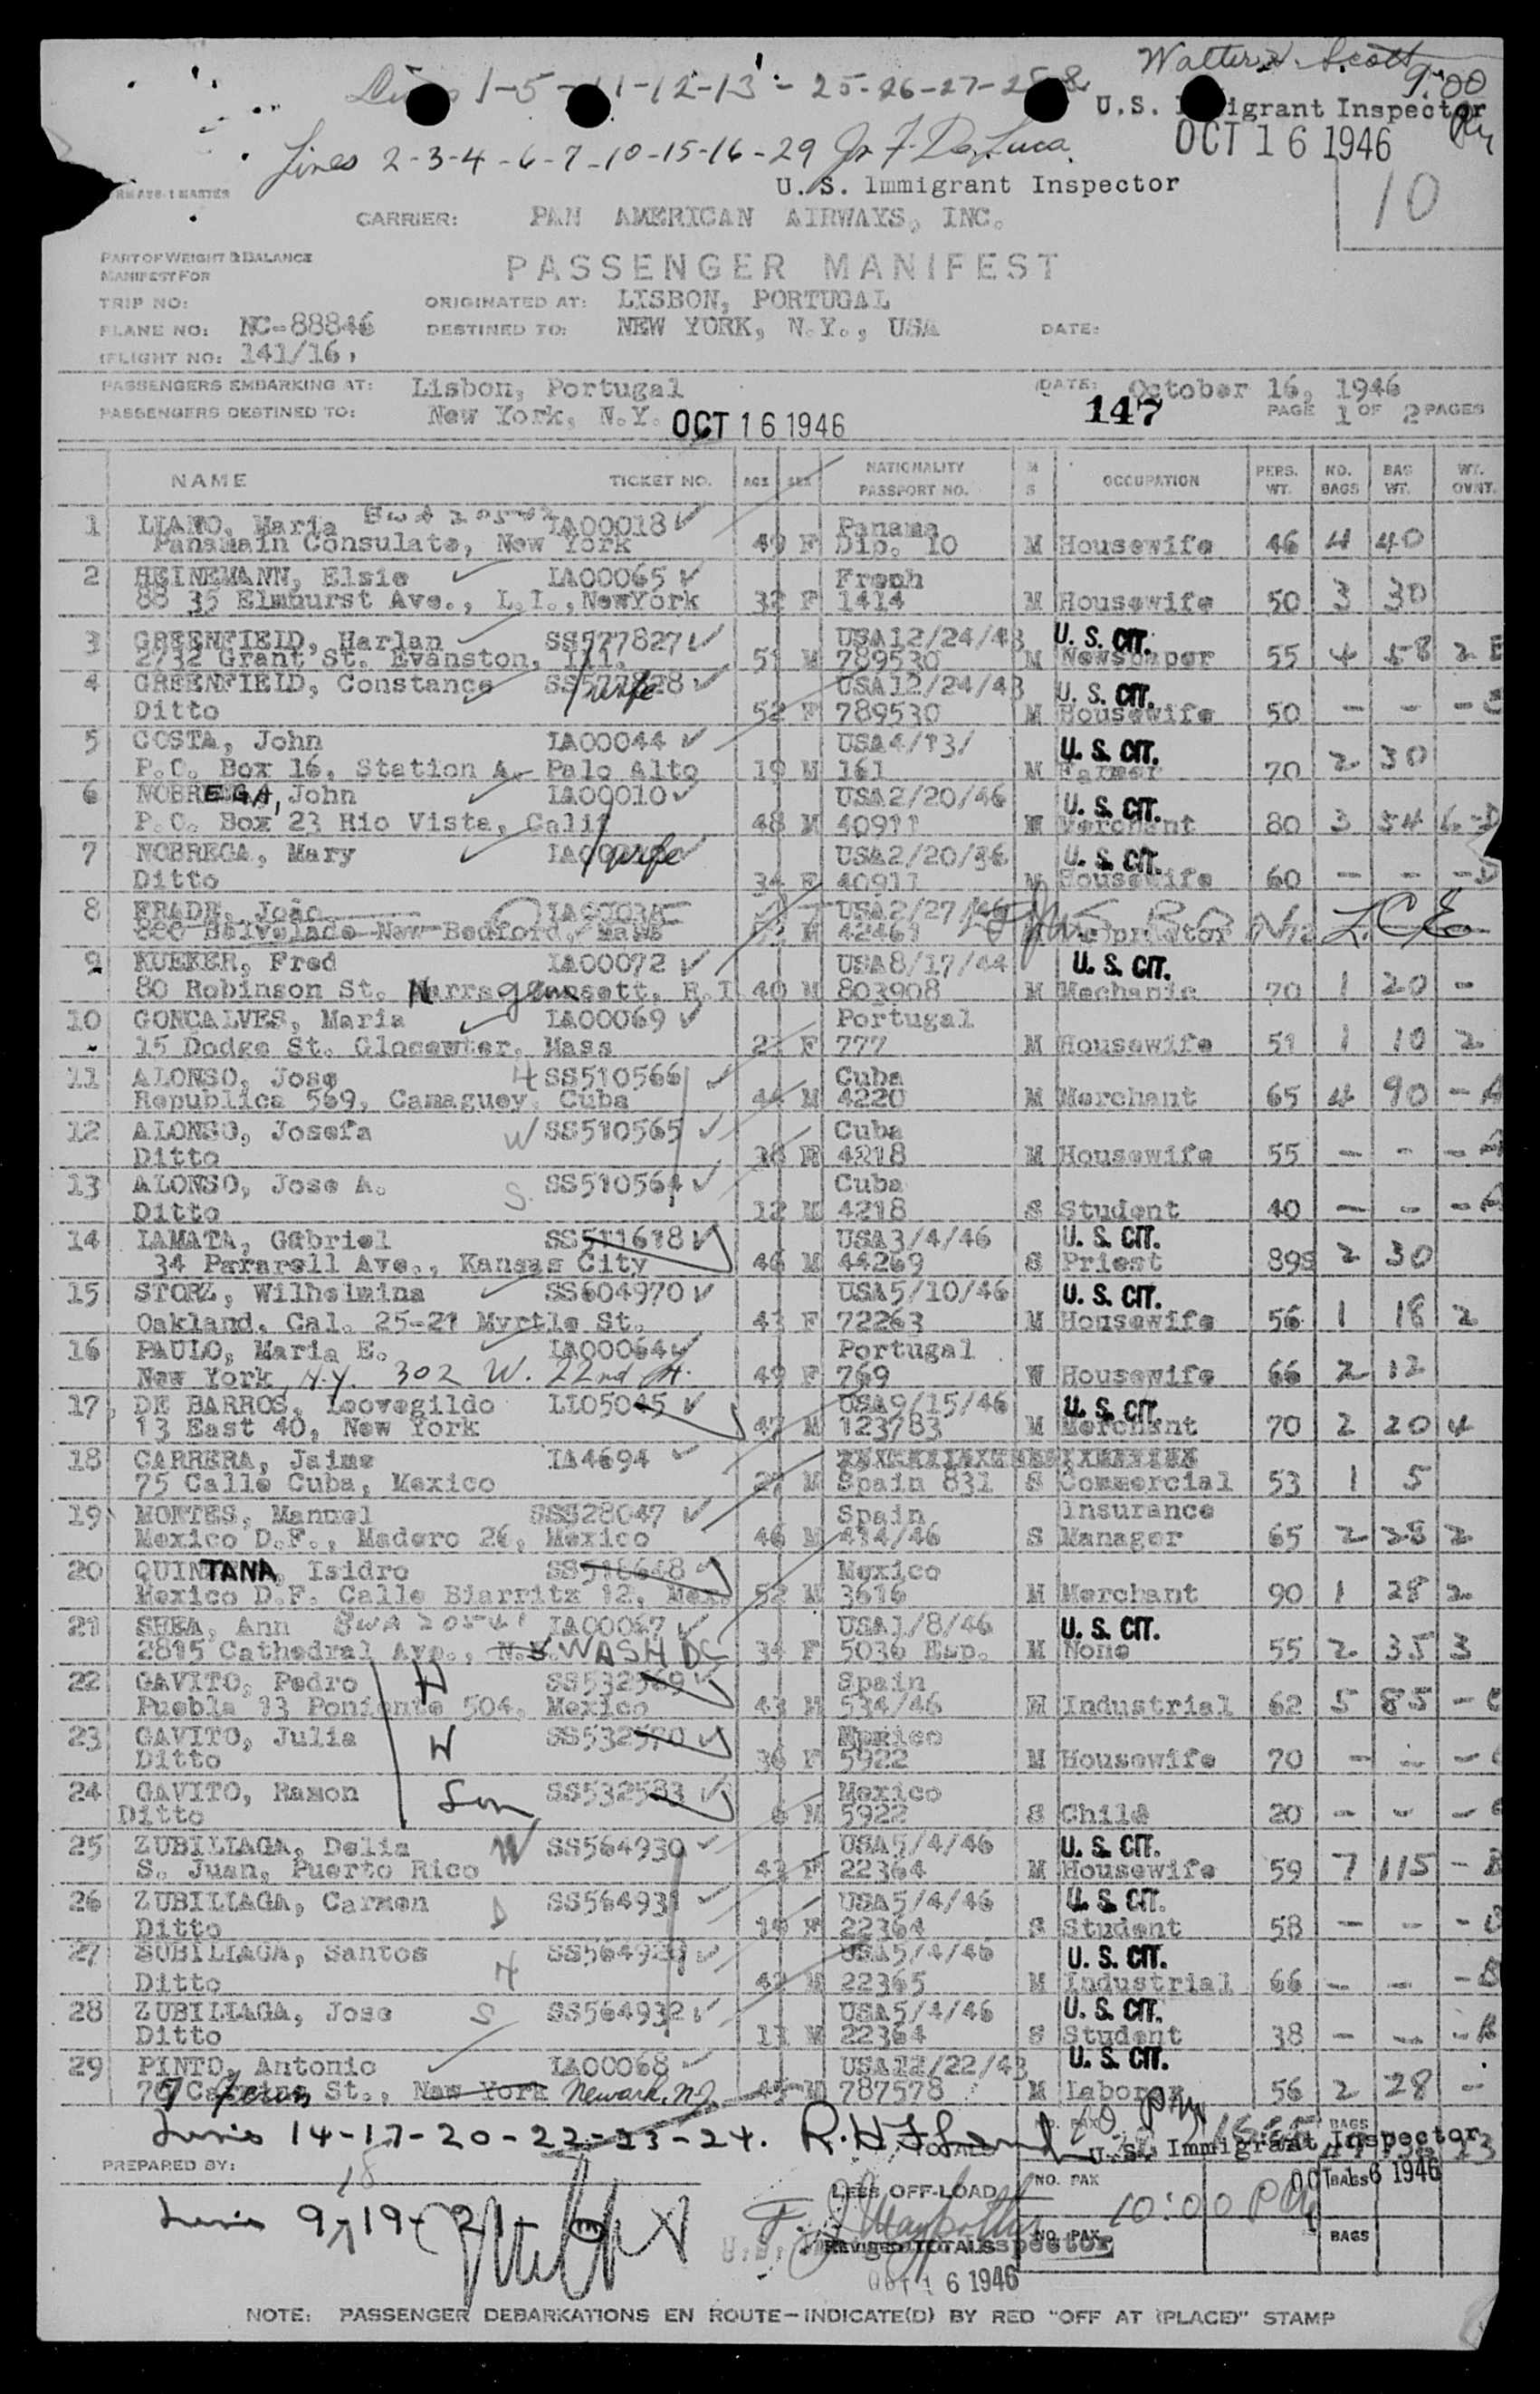 Walter Scott
9:00
Lines 1-5-11-12-13-25-26-27-28 &
U.S. Immigrant Inspector
OCT 16 1946
Lines 2-3-4-6-7-10-15-16-29
U.S. Immigrant Inspector
10
CARRIER: PAN AMERICAN AIRWAYS, INC.
PART OF WEIGHT & BALANCE
MANIFEST FOR
PASSENGER MANIFEST
TRIP NO: ORIGINATED AT: LISBON, PORTUGAL
PLANE NO: NC-88846 DESTINED TO: NEW YORK, N.Y., USA DATE:
FLIGHT NO: 141/16
PASSENGERS EMBARKING AT: Lisbon, Portugal DATE: October 16, 1946
PASSENGERS DESTINED TO: New York, N.Y. OCT 16 1946 147 PAGE 1 OF 2 PAGES
NAME TICKET NO. AGE SEX NATIONALITY PASSPORT NO. M S OCCUPATION PERS. WT. NO. BAGS BAG WT. WT. OVNT.
1 LLANO, Maria IA00018 Panama
Panamain Consulate, New York 49 F Dip. 10 M Housewife 46 4 40
2 HEINEMANN, Elsie IA00065 Frenh
88 35 Elmhurst Ave., L.I., NewYork 32 F 1414 M Housewife 50 3 30
3 GREENFIELD, Harlan SS577827 USA12/24/43 U. S. CIT.
2732 Grant St. Evanston, Ill. 51 M 789530 M Newspaper 55 4 58 2 E
4 GREENFIELD, Constance SS577828 wife USA12/24/43 U. S. CIT.
Ditto 52 F 789530 M Housewife 50 - - -
5 COSTA, John IA00044 USA4/13/ U. S. CIT.
P.O. Box 16, Station A, Palo Alto 19 M 161 M Farmer 70 2 30
6 NOBREGA, John IA00010 USA2/20/46 U. S. CIT.
P.O. Box 23 Rio Vista, Calif 48 M 40911 M Merchant 80 3 54 6-D
7 NOBREGA, Mary wife USA2/20/36 U. S. CIT.
Ditto 34 F 40911 M Housewife 60 - - -D
8 FRADE, João USA2/27/46
Belvelade New Bedford, Mass
9 KUEKER, Fred IA00072 USA8/17/44 U. S. CIT.
80 Robinson St. Narragansett, R.I 40 M 803908 M Mechanic 70 1 20 -
10 GONCALVES, Maria IA00069 Portugal
15 Dodge St. Glocewter, Mass F 777 M Housewife 51 1 10 2
11 ALONSO, Jose H SS510566 Cuba
Republica 569, Camaguey, Cuba 44 M 4220 M Merchant 65 4 90 -A
12 ALONSO, Josefa W SS510565 Cuba
Ditto 38 F 4218 M Housewife 55 - - -A
13 ALONSO, Jose A. S SS510564 Cuba
Ditto 12 M 4218 S Student 40 - - -A
14 LAMATA, Gabriel SS511618 USA3/4/46 U. S. CIT.
34 Pararell Ave., Kansas City 46 M 44269 S Priest 89S 2 30
15 STORZ, Wilhelmina SS604970 USA5/10/46 U. S. CIT.
Oakland, Cal. 25-21 Myrtle St. 43 F 72263 M Housewife 56 1 18 2
16 PAULO, Maria E. IA00064 Portugal
New York, N.Y. 302 W. 22nd St. 49 F 769 W Housewife 66 2 12
17 DE BARROS, Leovegildo LI05045 USA9/15/46 U. S. CIT.
13 East 40, New York 47 M 123783 M Merchant 70 2 20 4
18 CARRERA, Jaime IA4694
75 Calle Cuba, Mexico 27 M Spain 831 S Commercial 53 1 5
19 MONTES, Manuel SSS28047 Spain Insurance
Mexico D.F., Madero 26, Mexico 46 M 434/46 S Manager 65 2 28 2
20 QUINTANA, Isidro SS518648 Mexico
Mexico D.F. Calle Biarritz 12, Mex. 52 M 3616 M Merchant 90 1 28 2
21 SHEA, Ann IA00067 USA1/8/46 U. S. CIT.
2815 Cathedral Ave., WASH DC 34 F 5036 Esp. M None 55 2 35 3
22 GAVITO, Pedro H SS532569 Spain
Puebla 13 Poniente 504, Mexico 43 M 534/46 M Industrial 62 5 85 -C
23 GAVITO, Julia W SS532570 Mexico
Ditto 36 F 5922 M Housewife 70 - - -
24 GAVITO, Ramon Son SS532583 Mexico
Ditto 6 M 5922 S Child 20 - - -
25 ZUBILLAGA, Delia W SS564930 USA5/4/46 U. S. CIT.
S. Juan, Puerto Rico 43 F 22364 M Housewife 59 7 115 -B
26 ZUBILLAGA, Carmen D SS564931 USA5/4/46 U. S. CIT.
Ditto 19 F 22364 S Student 58 - - -B
27 SUBILLAGA, Santos H USA5/4/46 U. S. CIT.
Ditto 42 M 22365 M Industrial 66 - - -B
28 ZUBILLAGA, Jose S SS564932 USA5/4/46 U. S. CIT.
Ditto 11 M 22364 S Student 38 - - -B
29 PINTO, Antonio IA00068 USA12/22/43 U. S. CIT.
St., New York Newark, N.J. 45 M 787578 M Laborer 56 2 28 -
Lines 14-17-20-22-23-24.
U.S. Immigrant Inspector
PREPARED BY: OCT 16 1946
LESS OFF-LOAD NO. PAX BAGS
10:00 PM
Lines 9-19-21
REVISED TOTALS NO. PAX BAGS
OCT 16 1946
NOTE: PASSENGER DEBARKATIONS EN ROUTE-INDICATE(D) BY RED "OFF AT (PLACE)" STAMP